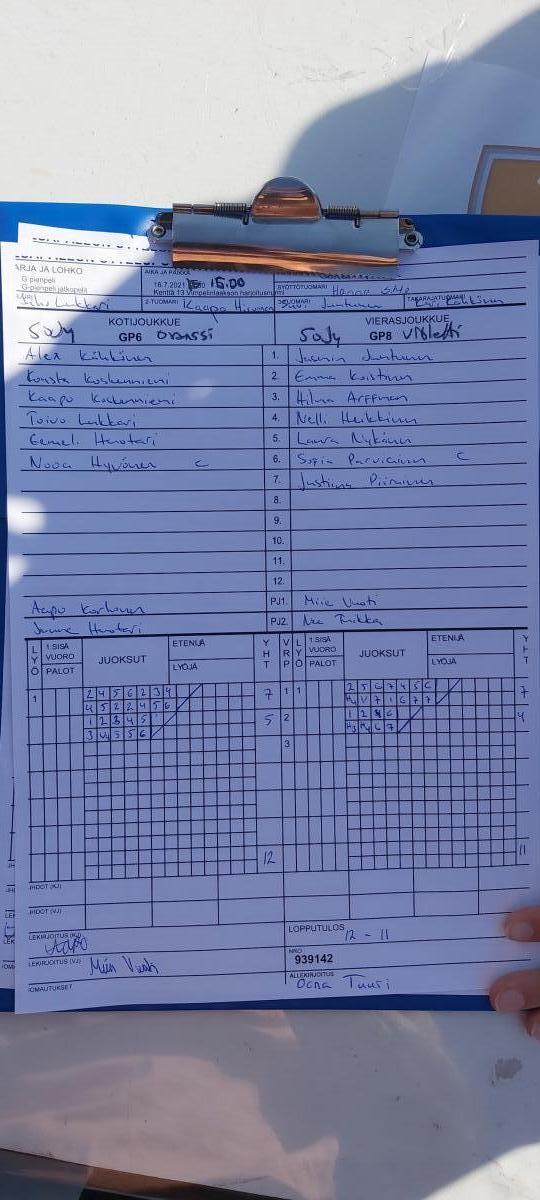 ARJA JA LOHKO
AIKA JA PAIKKA
G pienpeli
G-pienpeli jatkopeli
16.7.2021 15.00
Kenttä 13 Vimpelinlaakson harjoitusnurmi
SYÖTTÖTUOMARI Hanna
2-TUOMARI Kaapo
3-TUOMARI Juntunen
TAKARAJATUOMARI
KOTIJOUKKUE VIERASJOUKKUE
SoJy GP6 Oranssi SoJy GP8 Violetti
Alex Kähkönen 1. Jasmin Juntunen
Konsta Koskenniemi 2. Emma Koistinen
Kaapo Koskenniemi 3. Hilma Arffman
Toivo Lukkari 4. Nelli Heikkinen
Eemeli Huotari 5. Laura Nykänen
Nooa Hyvönen C 6. Sofia Parviainen C
7. Justiina Piirainen
8.
9.
10.
11.
12.
Aapo Korhonen PJ1. Miia Vuoti
Huotari PJ2.
LYÖ 1.SISÄ VUORO PALOT JUOKSUT ETENIJÄ LYÖJÄ YHT VRP LYÖ 1.SISÄ VUORO PALOT JUOKSUT ETENIJÄ LYÖJÄ YHT
1 2 4 5 6 2 3 4 7 1 1 2 5 6 7 4 5 6 7
4 5 2 2 4 5 6 V 7 1 6 7 7
1 2 3 4 5 5 2 1 2 4 6 4
3 V 5 5 6 6 7
3
12 11
HDOT (KJ)
HDOT (VJ)
LEKIRJOITUS (KJ) Aapo
LOPPUTULOS 12 - 11
LEKIRJOITUS (VJ) Miia Vuoti
NRO
939142
OMAUTUKSET
ALLEKIRJOITUS
Oona Tuuri